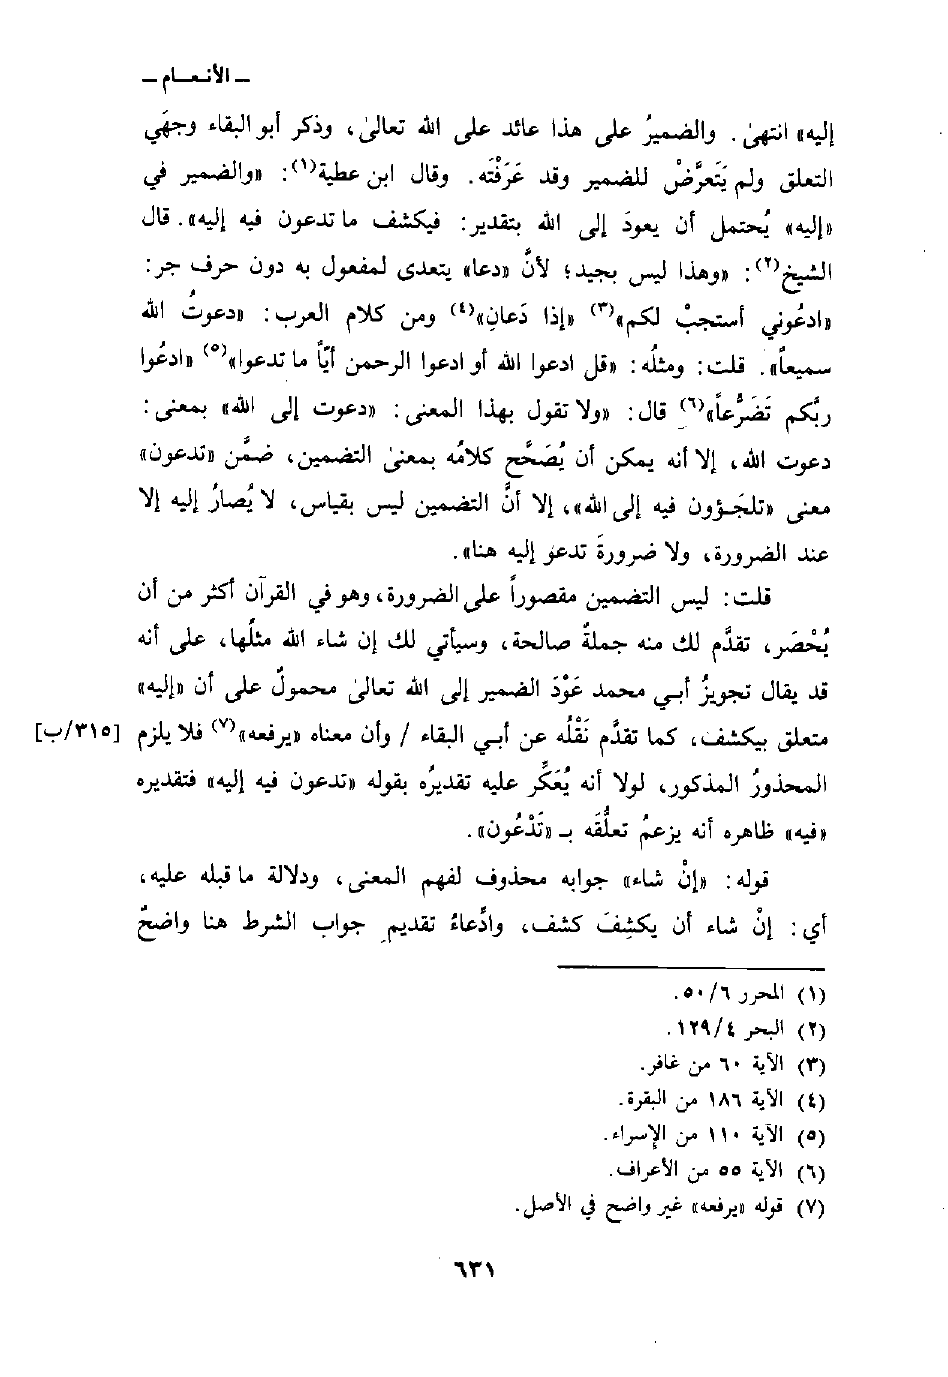 ـ الأنـعـــام ـ
إليه» انتهىٰ. والضميرُ على هذا عائد على الله تعالىٰ، وذكر أبو البقاء وجهَي
التعلق ولم يَتَعرَّضْ للضمير وقد عَرَفْتَه. وقال ابن عطية(١): «والضمير في
«إليه» يُحتمل أن يعودَ إلى الله بتقدير: فيكشف ما تدعون فيه إليه». قال
الشيخ(٢): «وهذا ليس بجيد؛ لأنَّ «دعا» يتعدى لمفعول به دون حرف جر:
«ادعُوني أستجبْ لكم»(٣) «إذا دَعانِ»(٤) ومن كلام العرب: «دعوتُ الله
سميعاً». قلت: ومثلُه: «قل ادعوا الله أو ادعوا الرحمن أيّاً ما تدعوا»(٥) «ادعُوا
ربَّكم تَضَرُّعاً»(٦) قال: «ولا تقول بهذا المعنى: «دعوت إلى الله» بمعنى:
دعوت الله، إلا أنه يمكن أن يُصَحَّح كلامُه بمعنىٰ التضمين، ضمَّن «تدعون»
معنى «تلجَؤون فيه إلى الله»، إلا أنَّ التضمين ليس بقياس، لا يُصارُ إليه إلا
عند الضرورة، ولا ضرورةَ تدعو إليه هنا».
قلت: ليس التضمين مقصوراً على الضرورة، وهو في القرآن أكثر من أن
يُحْصَر، تقدَّم لك منه جملةٌ صالحة، وسيأتي لك إن شاء الله مثلُها، على أنه
قد يقال تجويزُ أبي محمد عَوْدَ الضمير إلى الله تعالىٰ محمولٌ على أن «إليه»
متعلق بيكشف، كما تقدَّم نَقْلُه عن أبي البقاء / وأن معناه «يرفعه»(٧) فلا يلزم [٣١٥/ب]
المحذورُ المذكور، لولا أنه يُعَكِّر عليه تقديرُه بقوله «تدعون فيه إليه» فتقديره
«فيه» ظاهره أنه يزعمُ تعلُّقَه بـ «تَدْعُون».
قوله: «إنْ شاء» جوابه محذوف لفهم المعنى، ودلالة ما قبله عليه،
أي: إنْ شاء أن يكشِفَ كشف، وادِّعاءُ تقديم جواب الشرط هنا واضحٌ
(١) المحرر ٥٠/٦.
(٢) البحر ١٢٩/٤.
(٣) الآية ٦٠ من غافر.
(٤) الآية ١٨٦ من البقرة.
(٥) الآية ١١٠ من الإسراء.
(٦) الآية ٥٥ من الأعراف.
(٧) قوله «يرفعه» غير واضح في الأصل.
٦٣١